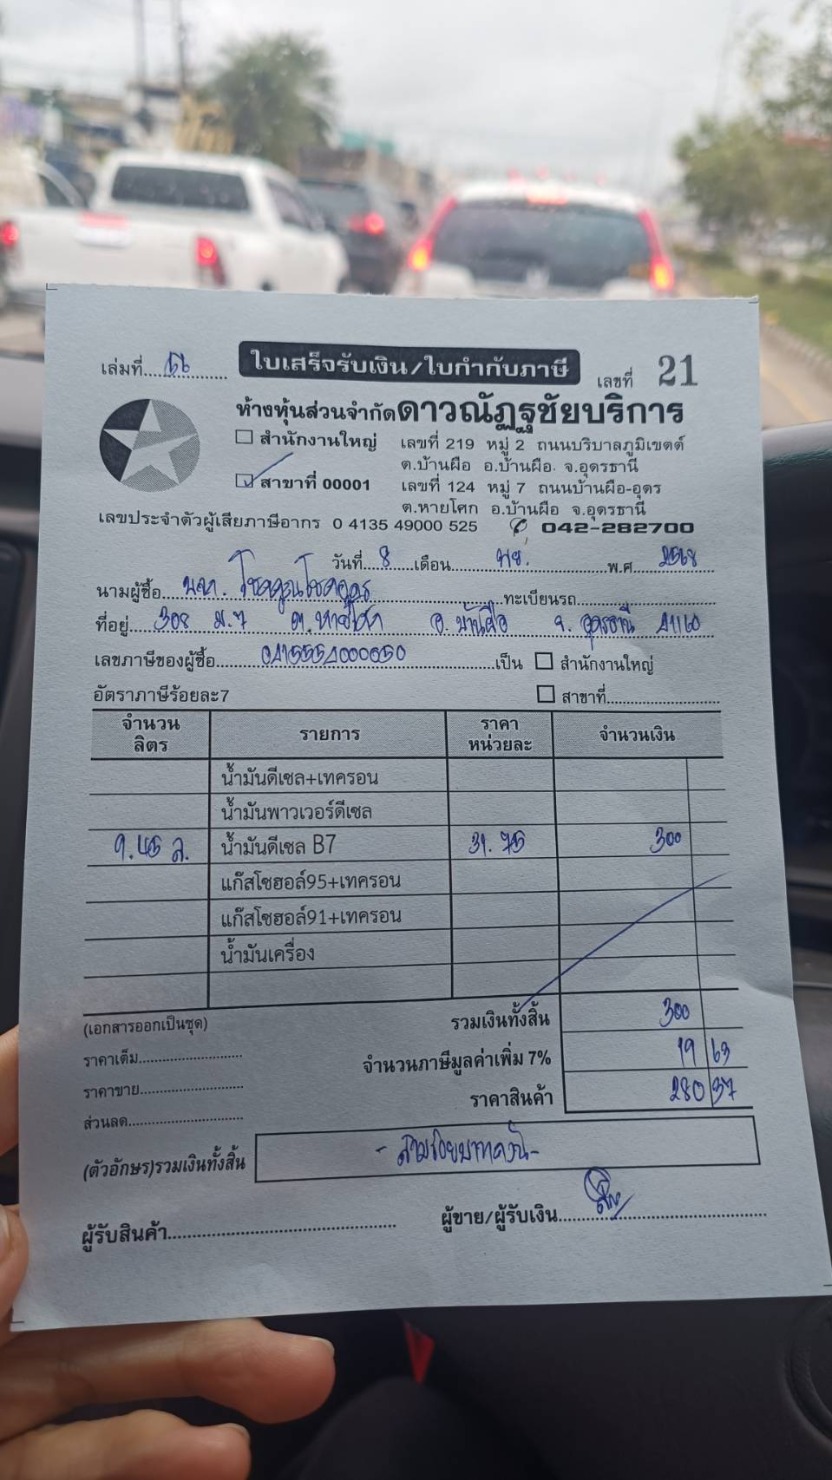 เล่มที่ 56 ใบเสร็จรับเงิน/ใบกำกับภาษี เลขที่ 21
ห้างหุ้นส่วนจำกัดดาวณัฏฐชัยบริการ
สำนักงานใหญ่ เลขที่ 219 หมู่ 2 ถนนบริบาลภูมิเขตต์
ต.บ้านผือ อ.บ้านผือ จ.อุดรธานี
สาขาที่ 00001 เลขที่ 124 หมู่ 7 ถนนบ้านผือ-อุดร
ต.หายโศก อ.บ้านผือ จ.อุดรธานี
เลขประจำตัวผู้เสียภาษีอากร 0 4135 49000 525 042-282700
วันที่ 8 เดือน พย. พ.ศ. 2568
นามผู้ซื้อ ทะเบียนรถ
ที่อยู่ 308 ม.7 ต.หายโศก อ.บ้านผือ จ.อุดรธานี 41160
เลขภาษีของผู้ซื้อ เป็น สำนักงานใหญ่
อัตราภาษีร้อยละ7 สาขาที่
จำนวน ลิตร รายการ ราคา หน่วยละ จำนวนเงิน
น้ำมันดีเซล+เทครอน
น้ำมันพาวเวอร์ดีเซล
9.45 ล. น้ำมันดีเซล B7 31.75 300
แก๊สโซฮอล์95+เทครอน
แก๊สโซฮอล์91+เทครอน
น้ำมันเครื่อง
(เอกสารออกเป็นชุด) รวมเงินทั้งสิ้น 300
ราคาเต็ม จำนวนภาษีมูลค่าเพิ่ม 7% 19 63
ราคาขาย ราคาสินค้า 280 37
ส่วนลด
(ตัวอักษร)รวมเงินทั้งสิ้น - สามร้อยบาทถ้วน -
ผู้รับสินค้า ผู้ขาย/ผู้รับเงิน